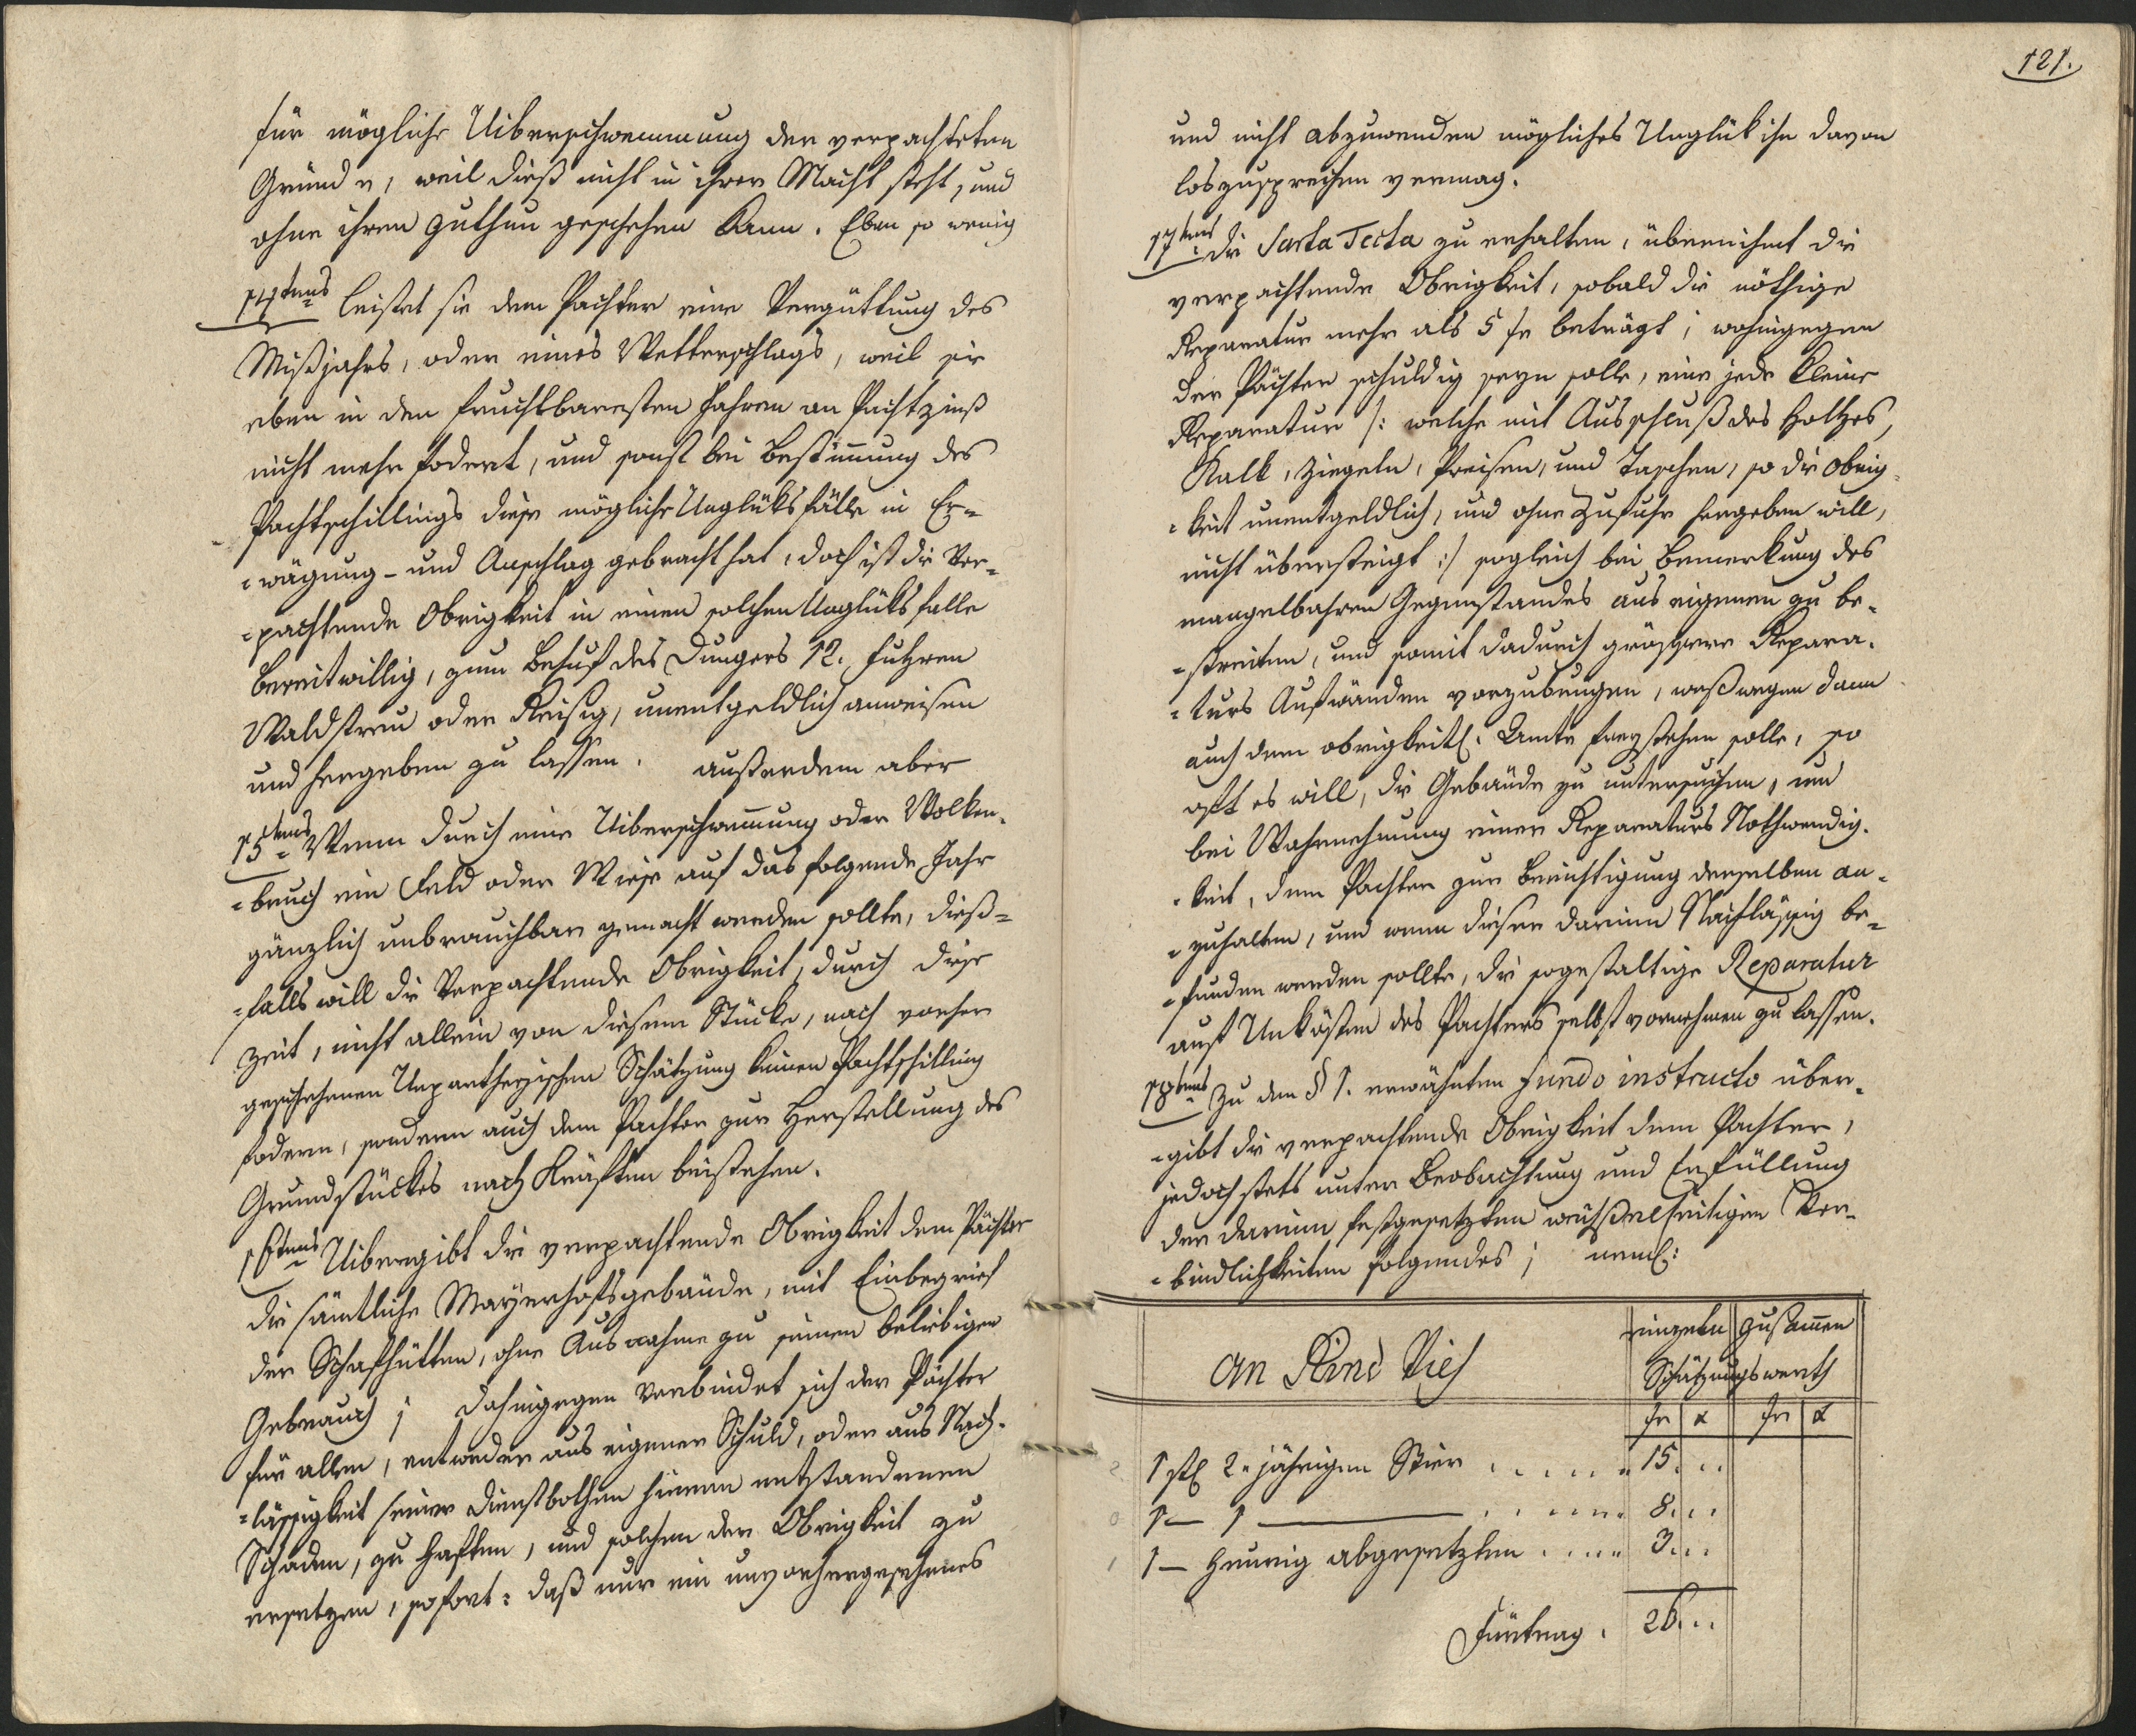 für mögliche Uiberschwemmung der verpachteten
Gründe, weil dieß nicht in ihrer Macht steht, und
ohne ihren zuthun geschehen kann. Eben so wenig
14tens leistet sie dem Pachter eine Vergüttung des
Mißjahrs, oder eines Wetterschlags, weil sie
eben in den fruchtbaresten Jahren an Pachtzinß
nicht mehr fodert, und sonst bei Bestimmung des
Pachtschillings diese mögliche Unglüksfälle in Er=
=wägung - und Anschlag gebracht hat, doch ist die Ver=
=pachtende Obrigkeit in einen solchen Unglüksfalle
bereitwillig, zum Behuf des Dungers 12. Fuhren
Waldstreu oder Reisig, unentgeldlich anweisen
und hergeben zu lassen. außerdem aber
15tens Wenn durch eine Uiberschwemmung oder Wolken=
=bruch ein Feld oder Wiese auf das folgende Jahr
gänzlich unbrauchbar gemacht werden sollte, dieß=
=falls will die Verpachtende Obrigkeit, durch diese
Zeit, nicht allein von diesem Stücke, nach vorher
geschehenen Unpartheyischen Schätzung keinen Pachtschilling
fodern, sondern auch dem Pachter zur Herstellung des
Grundstückes nach Kräften beistehen.
16tens Uibergibt die verpachtende Obrigkeit dem Pächter
die sämtliche Mayerhofsgebäude, mit Einbegrief
der Schafhütten, ohne Ausnahme zu seinen beliebigen
Gebrauch; dahingegen verbindet sich der Pächter
für allen, entweder aus eigener Schuld, oder aus Nach=
=lässigkeit seiner Dienstbothen hieran entstandenen
Schaden, zu haften, und solchen der Obrigkeit zu
ersetzen, sofort: daß nur ein unvorhergesehenes
121.
und nicht abzuwenden mögliches Unglük ihn davon
loszusprechen vermag.
17tens die Sarta Tecta zu erhalten, übernihmt die
verpachtende Obrigkeit, sobald die nöthige
Reparatur mehr als 5 fr beträgt; wohingegen
der Pächter schuldig seyn solle, eine jede kleine
Reparatur /: welche mit Ausschluß des Holtzes,
Kalk, Ziegeln, Preisen, und Taschen, so die Obrig=
=keit unentgeldlich, und ohne Zufuhr hergeben will,
nicht übersteigt :/ sogleich bei Bemerkung des
mangelbahren Gegenstandes aus eigenen zu be=
=streiten, und somit dadurch grössere Repara=
=turs Aufwänden vorzubeugen, weßwegen dann
auch dem obrigkeitl. Amte freystehen solle, so
oft es will, die Gebäude zu untersuchen, und
bei Wahrnehmung einer Reparaturs Nothwendig=
=keit, dem Pachter zur Berichtigung derselben an=
=zuhalten, und wenn dieser darinn Nachlässig be=
=funden werden sollte, die sogestaltige Reparatur
auf Unkösten des Pachters selbst vornehmen zu lassen.
18tens Zu dem § 1. erwähnten fundo instructo über=
=gibt die verpachtende Obrigkeit dem Pachter,
jedoch stets unter Beobachtung und Erfüllung
der darinn festgesetzten wechselseitigen Ver=
=bindlichkeiten folgendes; neml:
an Rind Vieh einzeln zusammen
Schätzungswerth
fr x fr x
1 stk 2. jährigen Stier . . . . . 15. . .
1 — 1 ——— . . . . . 8. . .
1 — Heurig abgesetzten . . . . 3. . .
Fürtrag. 26. . .